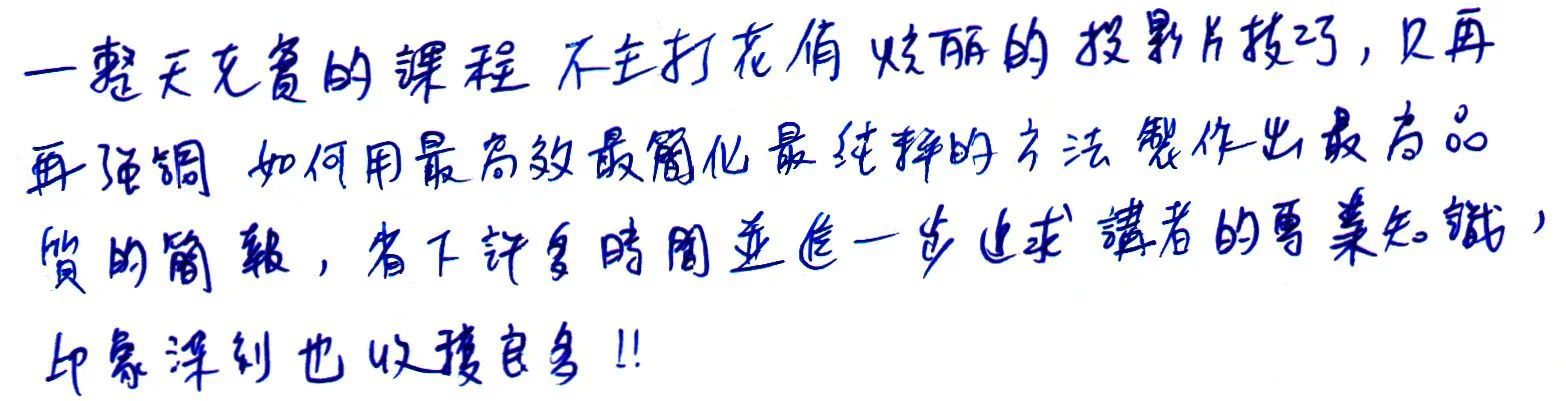 一整天充實的課程 不主打花俏炫丽的投影片技巧, 只再
再强調 如何用最高效最簡化最純粹的方法製作出最高品
質的簡報, 省下許多時間並進一步追求講者的專業知識,
印象深刻也收穫良多!!